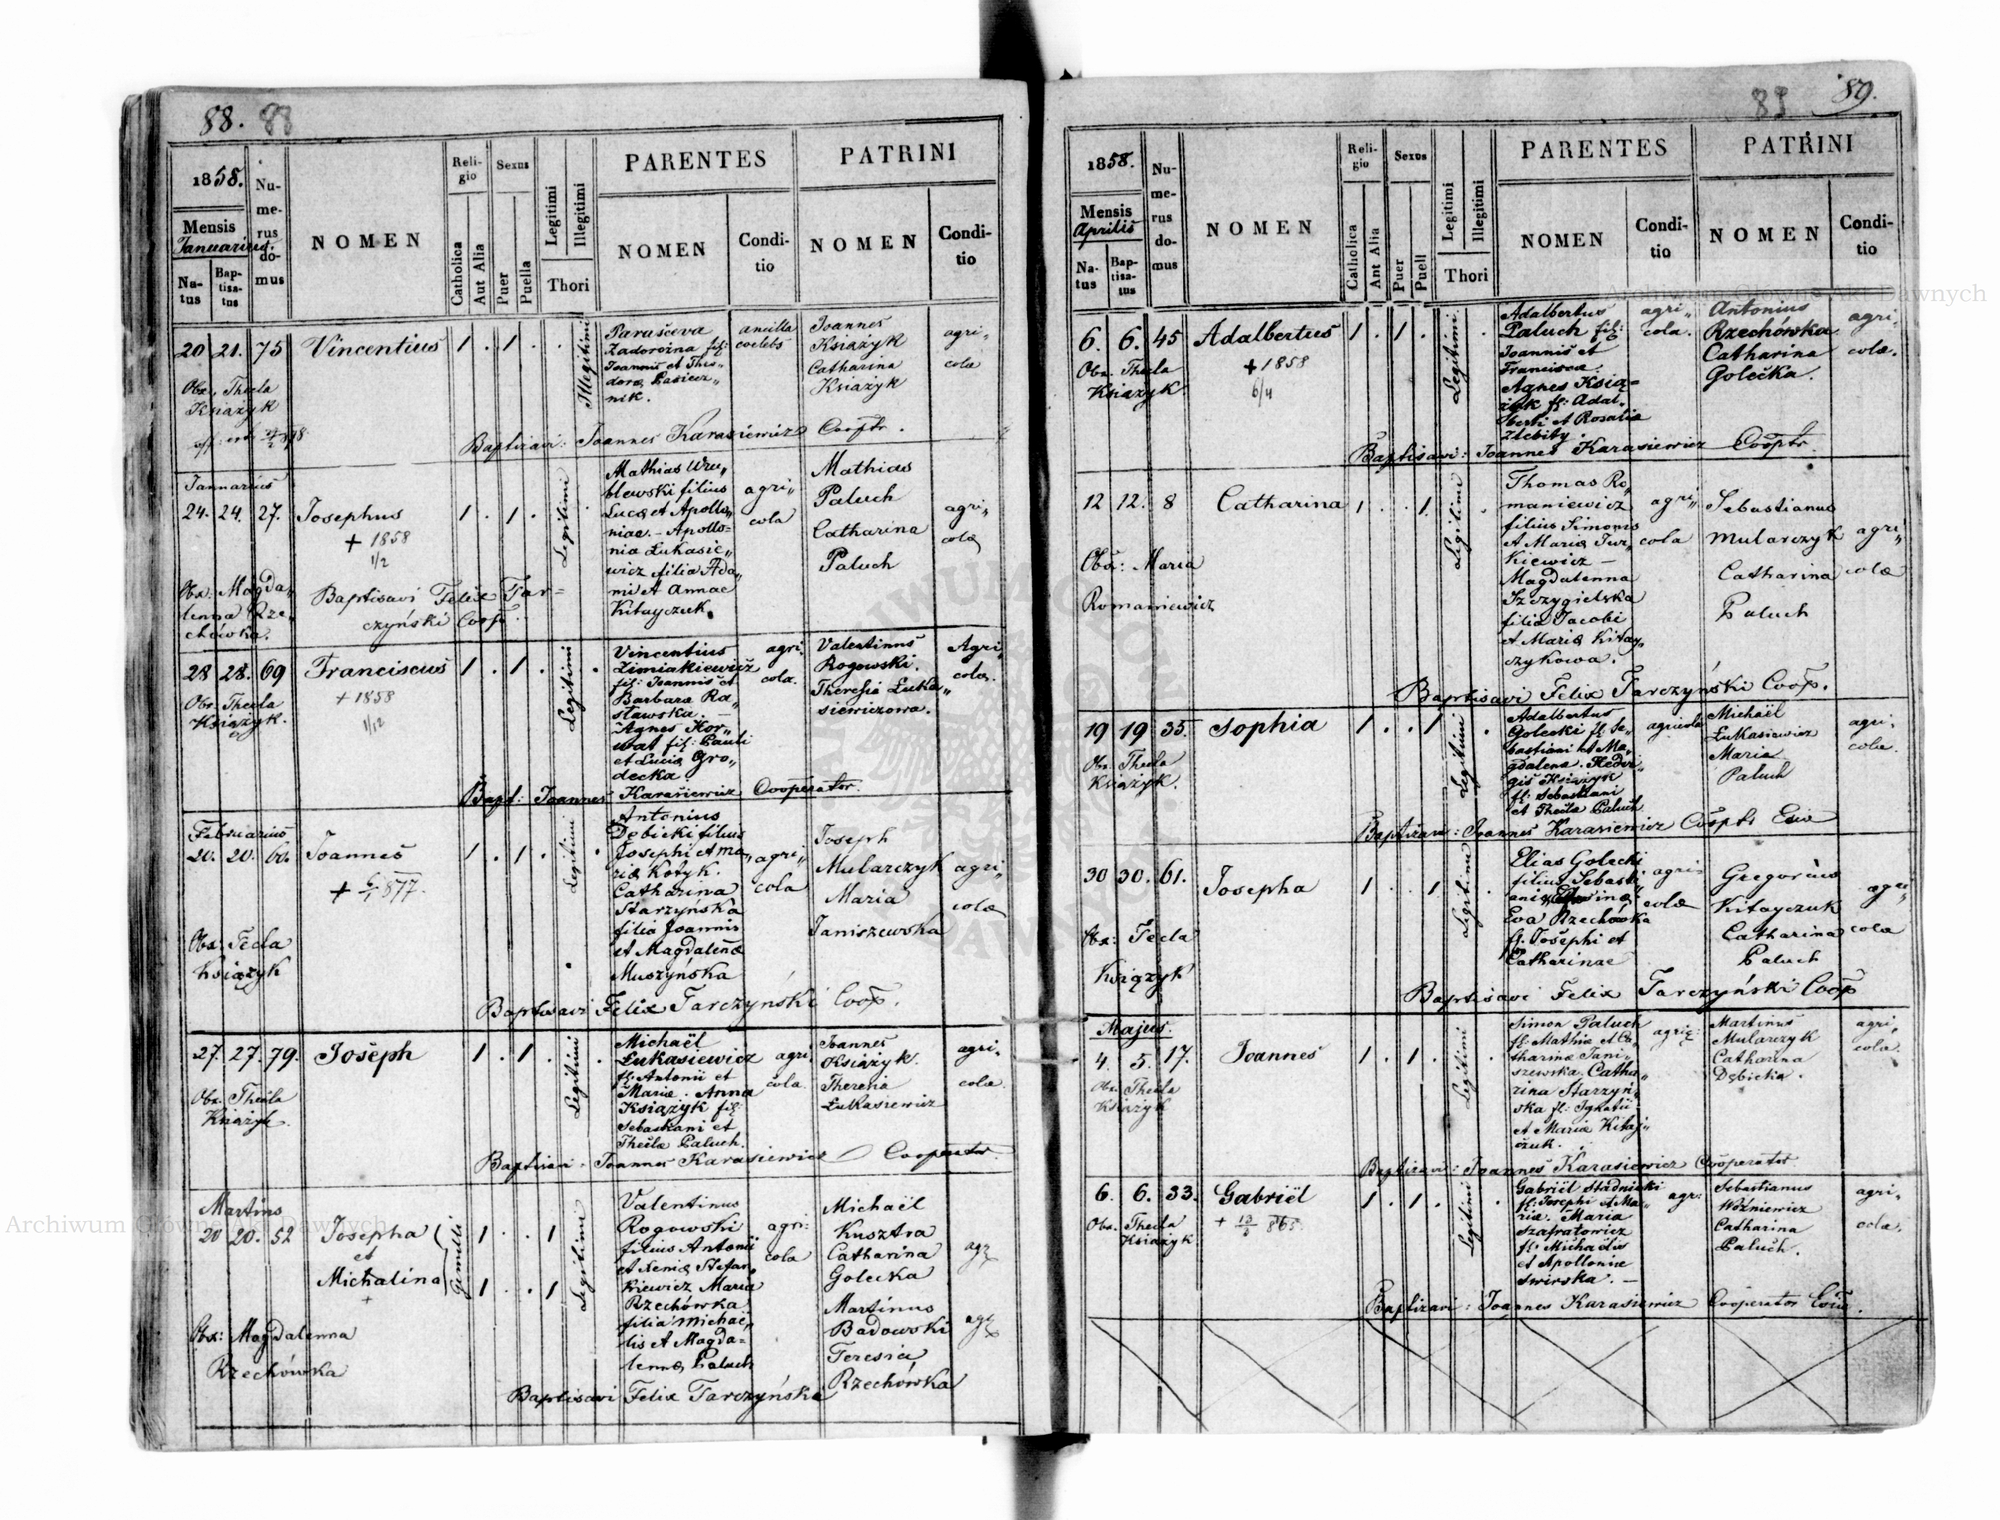 88. 88
1858.
Mensis
Januarius
Natus
Baptisatus
Numerus domus
NOMEN
Religio
Catholica
Aut Alia
Sexus
Puer
Puella
Legitimi
Illegitimi
Thori
PARENTES
NOMEN
Conditio
PATRINI
NOMEN
Conditio
20 21. 75 Vincentius 1 . 1 . .
Obs. Thecla
Książyk
Illegitimi
Parasceva
Zadorożna fil:
Joannis et Theo„
doræ Pasiecz„
nik.
ancilla
coelebs
Joannes
Książyk
Catharina
Książyk
agri„
colæ
Baptizavi: Joannes Karasiewicz Cooptr.
Januarius
24. 24. 27. Josephus 1 . 1 .
+ 1858
1/2
Obs: Magda„
lenna Rze„
chówka.
Legitimi
Mathias Wru„
blewski filius
Lucæ et Apollo„
niae. - Apollo=
nia Łukasie„
wicz filia Ada„
mi et Annae
Kitayczuk.
agri„
cola
Mathias
Paluch
Catharina
Paluch
agri„
colæ
Baptisavi Felix Tar=
czyński Coop.
28 28. 69 Franciscus 1 . 1 . .
+ 1858
1/12
Obs. Thecla
Książyk.
Legitimi
Vincentius
Zimiakiewicz
fil: Joannis et
Barbara Ra„
sławska. —
Agnes Hor„
wat fil: Pauli
et Lucia Gro„
decka.
agri.
cola.
Valentinus
Rogowski.
Theresia Łuka„
siewiczowa.
Agri„
colæ.
Bapt: Joannes Karasiewicz Cooperator.
Februarius
20. 20. 60. Joannes 1 . 1 . .
+ 6/1 877.
Obs: Tecla
Książyk
Legitimi
Antonius
Dębicki filius
Josephi et Ma„
riæ Kotyk.
Catharina
Starzyńska
filia Joannis
et Magdalenæ
Muszyńska
agri„
cola
Joseph
Mularczyk
Maria
Janiszewska
agri„
colæ
Baptisavi Felix Tarczyński Coop.
27. 27. 79. Joseph 1 . 1 . .
Obs. Thecla
Książyk.
Legitimi
Michaël
Łukasiewicz
fil: Antonii et
Mariæ. Anna
Książyk fil:
Sebastiani et
Theclæ Paluch.
agri
cola.
Joannes
Książyk.
Theresia
Łukasiewicz
agri„
colæ.
Baptizavi: Joannes Karasiewicz Cooperator.
Martius
20 20. 52 Josepha
et
Michalina
+
Gemelli
1 . . 1
1 . . 1
Obs: Magdalenna
Rzechówka
Legitimi
Valentinus
Rogowski
filius Antonii
et Xeniæ Stefan„
kiewicz Maria
Rzechówka
filia Michaë„
lis et Magda=
lennæ Paluch
agri:
cola
Michaël
Kusztra
Catharina
Golecka
Martinus
Badowski
Teresia
Rzechówka
Baptisavi Felix Tarczyński
89 89.
1858.
Mensis
Aprilis
Natus
Baptisatus
Numerus domus
NOMEN
Religio
Catholica
Ant Alia
Sexus
Puer
Puell
Legitimi
Illegitimi
Thori
PARENTES
NOMEN
Conditio
PATRINI
NOMEN
Conditio
6. 6. 45 Adalbertus 1 . 1 . .
+ 1858
6/4
Obs. Thecla
Książyk.
Legitimi
Adalbertus
Paluch fil:
Joannis et
Francisca.
Agnes Ksią=
żyk fil: Adal„
berti et Rosalia
Zlebity.
agri„
cola.
Antonius
Rzechówka
Catharina
Golecka.
agri„
colæ.
Baptisavi: Joannes Karasiewicz Cooptr.
12 12. 8 Catharina 1 . . 1 .
Obs: Maria
Romaniewicz
Legitimi
Thomas Ro„
maniewicz
filius Simonis
et Mariæ Jur„
kiewicz —
Magdalenna
Szczygielska
filia Jacobi
et Mariæ Kitay„
czykowa.
agri„
cola
Sebastianus
Mularczyk
Catharina
Paluch
agri„
colæ
Baptisavi Felix Tarczyński Coop.
19 19 35. Sophia 1 . . 1 .
Obs. Thecla
Książyk.
Legitimi
Adalbertus
Golecki fil: Se„
bastiani et Ma„
gdalena. Hedvi„
gis Książyk
fil: Sebastiani
et Thecla Paluch
agricola
Michaël
Łukasiewicz
Maria
Paluch
agri„
colæ.
Baptizavi: Joannes Karasiewicz
30 30. 61. Josepha 1 . . 1 .
Obs: Tecla
Książyk
Legitimi
Elias Golecki
filius Sebasti„
Eva Rzechówka
fil: Josephi et
Catharinae
agri=
colæ
Gregorius
Kitayczuk
Catharina
Paluch
agri„
colæ
Baptisavi Felix Tarczyński Coop
Majus.
4. 5. 17. Joannes 1 . 1 . .
Obs. Thecla
Książyk
Legitimi
Simon Paluch
fil: Mathiæ et Ca„
tharinæ Jani„
szewska. Catha„
rina Starzyń„
ska fil: Ignatii
et Mariæ Kitaj„
czuk.
Martinus
Mularczyk
Catharina
Dębicka.
agri„
colæ.
Baptizavi: Joannes Karasiewicz Cooperator
6. 6. 33. Gabriël 1 . 1 . .
Obs. Thecla
Książyk
Legitimi
Gabriël Stadnicki
fil: Josephi et Ma„
riæ. Maria
Szafratowicz
fil: Michaëlis
et Apolloniæ
Swirska. —
agr:
Sebastianus
Woźniewicz
Catharina
Paluch.
agri„
colæ.
Baptizavi: Joannes Karasiewicz Cooperator
Archiwum Główne Akt Dawnych
Archiwum Główne Akt Dawnych
ARCHIWUM GŁÓWNE AKT DAWNYCH